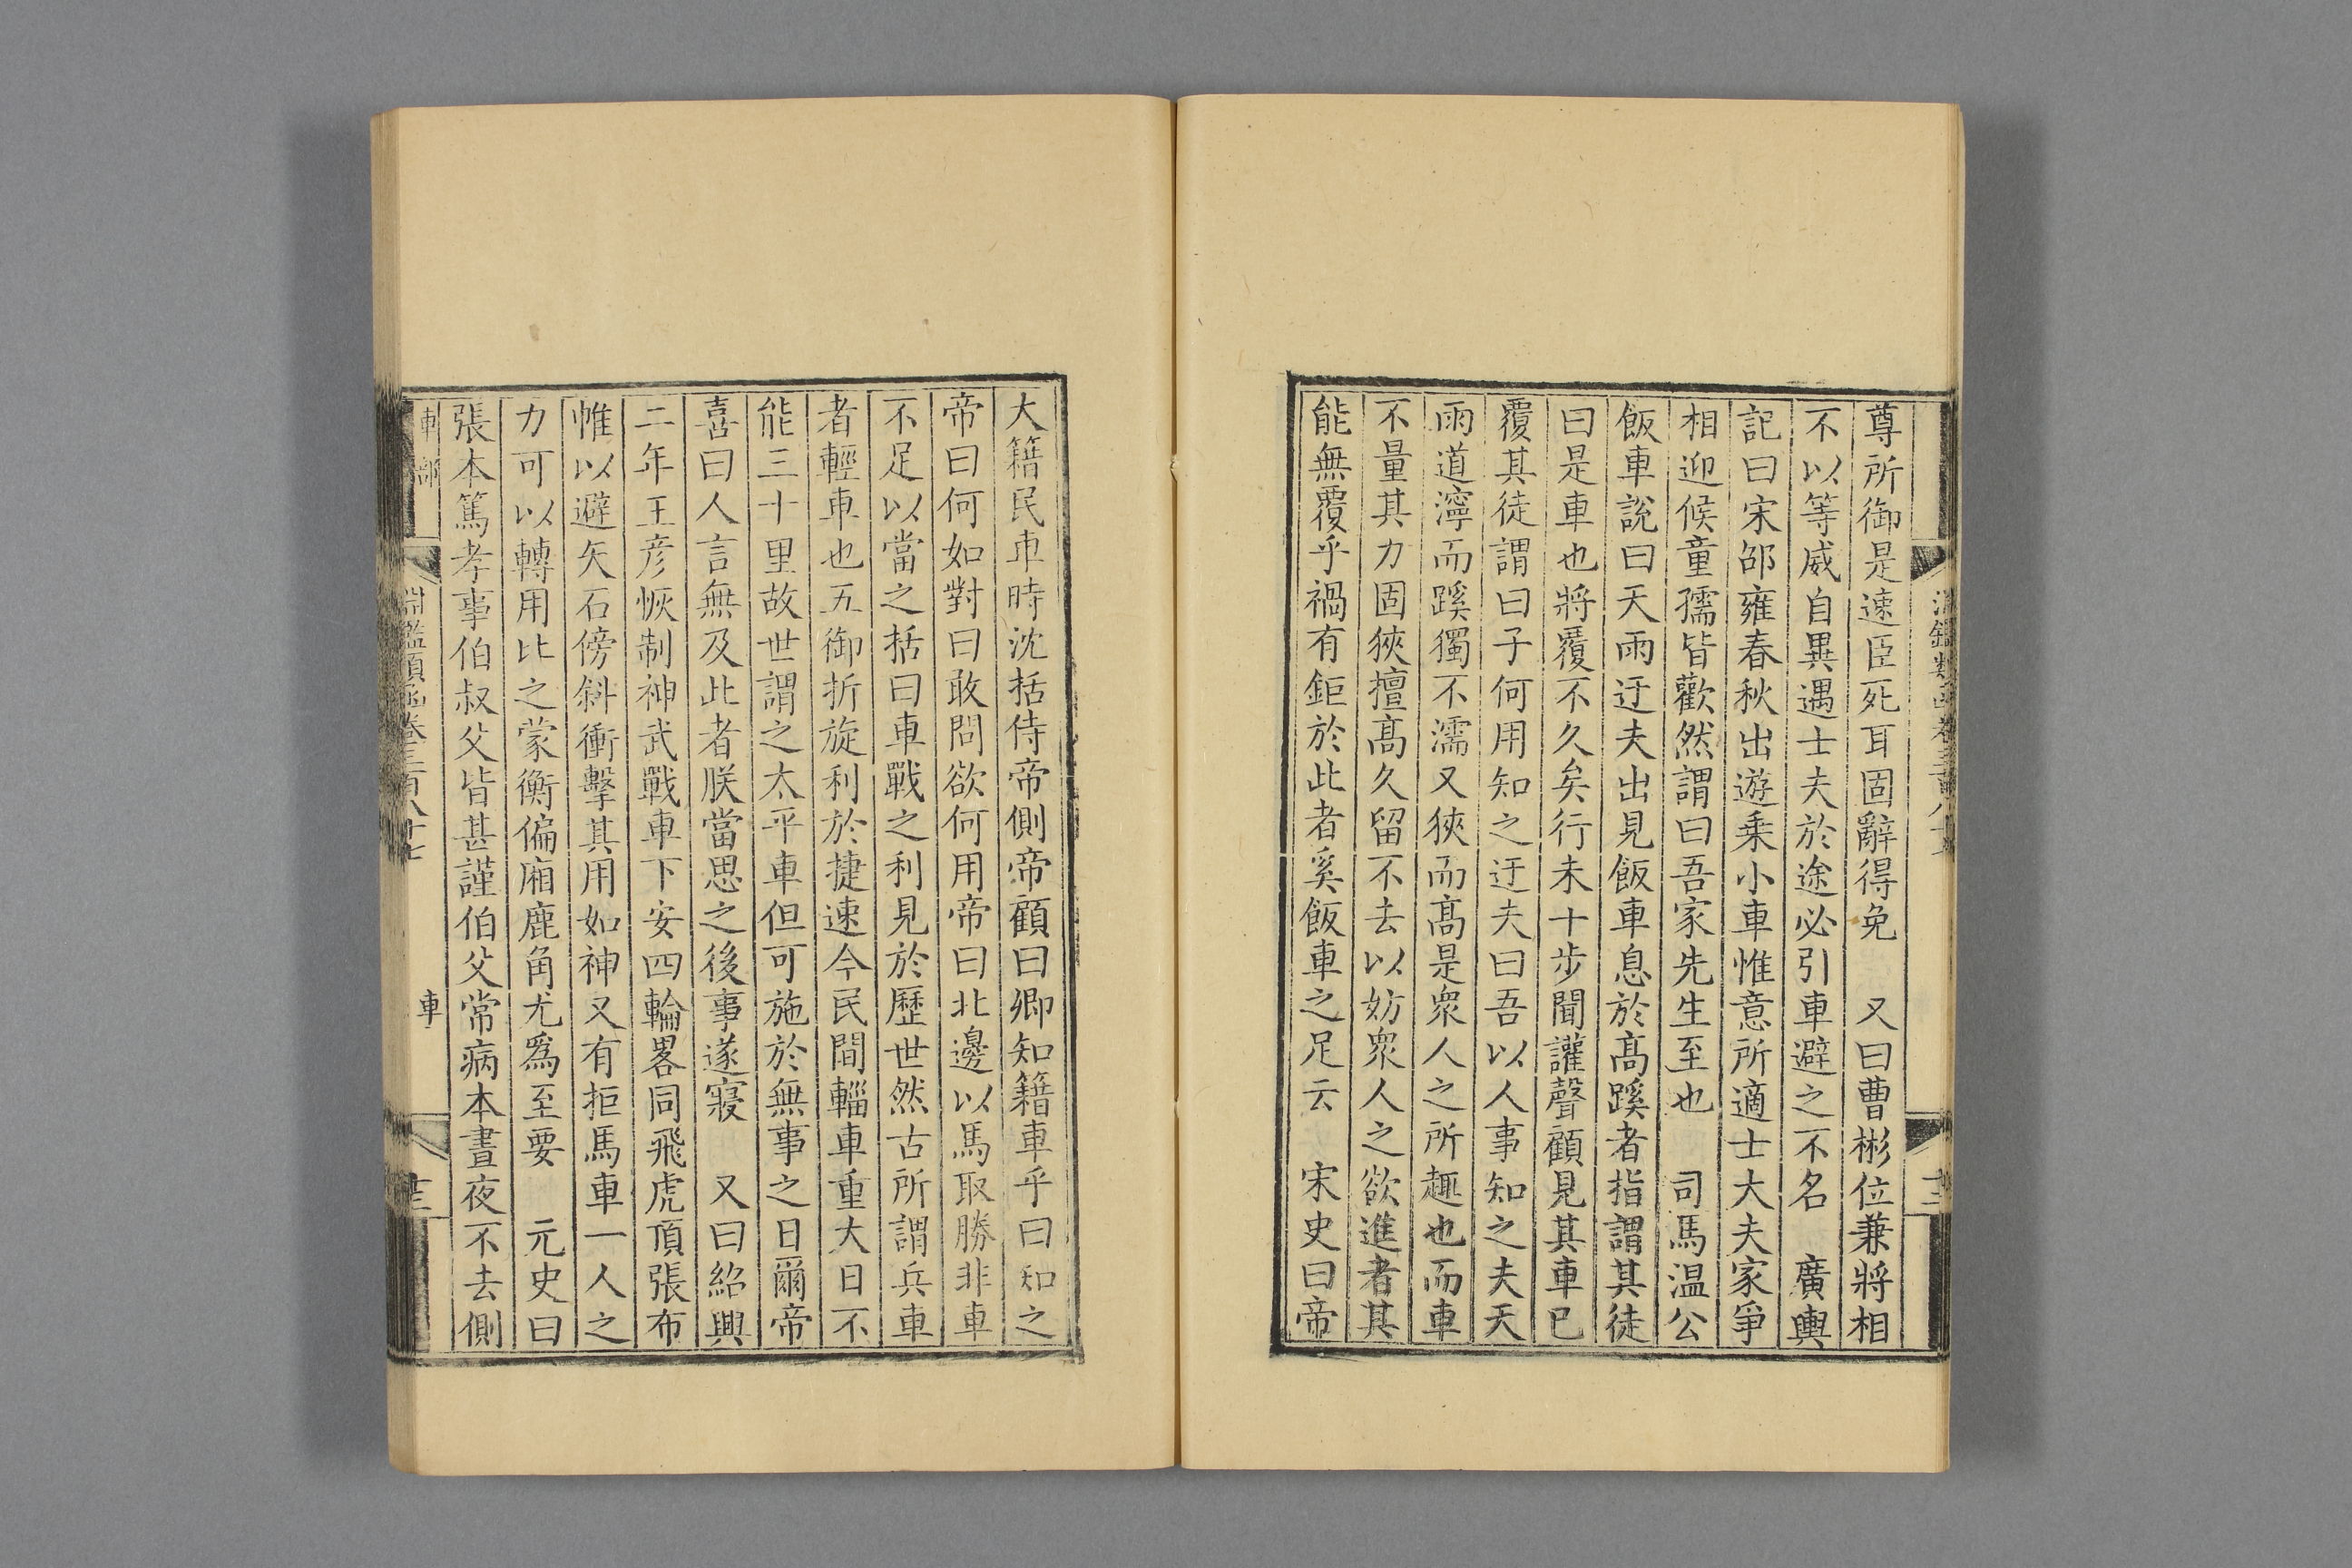 尊所御是速臣死耳固辭得免　又曰曹彬位兼將相
不以等威自異遇士夫於途必引車避之不名　廣輿
記曰宋邵雍春秋出遊乘小車惟意所適士大夫家爭
相迎候童孺皆歡然謂曰吾家先生至也　司馬温公
飯車說曰天雨迂夫出見飯車息於高蹊者指謂其徒
曰是車也將覆不久矣行未十步聞讙聲顧見其車已
覆其徒謂曰子何用知之迂夫曰吾以人事知之夫天
雨道濘而蹊獨不濡又狹而高是衆人之所趣也而車
不量其力固狹擅高久留不去以妨衆人之欲進者其
能無覆乎禍有鉅於此者奚飯車之足云　宋史曰帝
大籍民車時沈括侍帝側帝顧曰卿知籍車乎曰知之
帝曰何如對曰敢問欲何用帝曰北邊以馬取勝非車
不足以當之括曰車戰之利見於歷世然古所謂兵車
者輕車也五御折旋利於捷速今民間輜車重大日不
能三十里故世謂之太平車但可施於無事之日爾帝
喜曰人言無及此者朕當思之後事遂寢　又曰紹興
二年王彦恢制神武戰車下安四輪畧同飛虎頂張布
帷以避矢石傍斜衝擊其用如神又有拒馬車一人之
力可以轉用比之蒙衡偏廂鹿角尤爲至要　元史曰
張本篤孝事伯叔父皆甚謹伯父常病本晝夜不去側
車部　淵鑑類函卷三百八十七　車